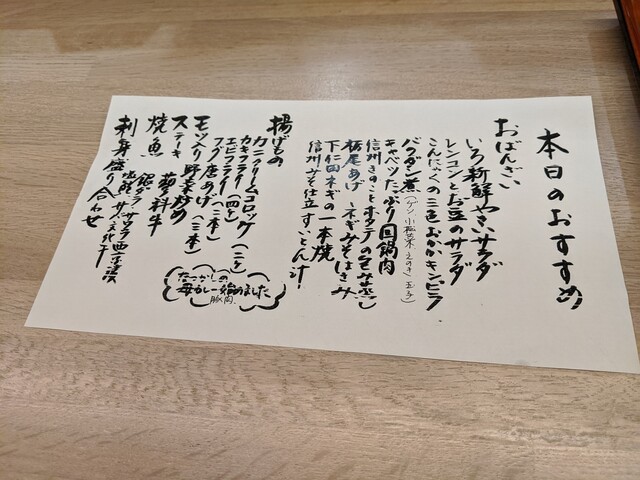 本日のおすすめ
おばんざい
いろ新鮮やさいサラダ
レンコンとお豆のサラダ
こんにゃくの三色おかかキンピラ
バクダン煮(ゲソ 小松菜 えのき 玉子)
キャベツたっぷり回鍋肉
信州きのことホタテの包み蒸し
栃尾あげ ネギみそはさみ
下仁田ネギの一本焼
信州みそ仕立すいとん汁
揚げもの
カニクリームコロッケ(二ケ)
カキフライ(四ケ)
エビフライ(二本)
フグ唐あげ(三本)
モツ入り野菜炒め
ステーキ 蓼科牛
焼魚 銀ダラ サワラ西京漬
塩鮭 サバ文化干
刺身盛り合わせ
なつかしの
母カレー始めました
豚肉